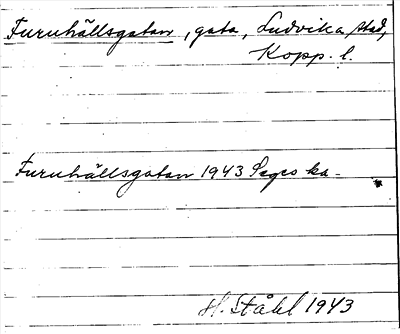 Furuhällsgatan, gata, Ludvika stad,
Kopp. l.
Furuhällsgatan 1943 Seqes ka
H. Ståhl 1943